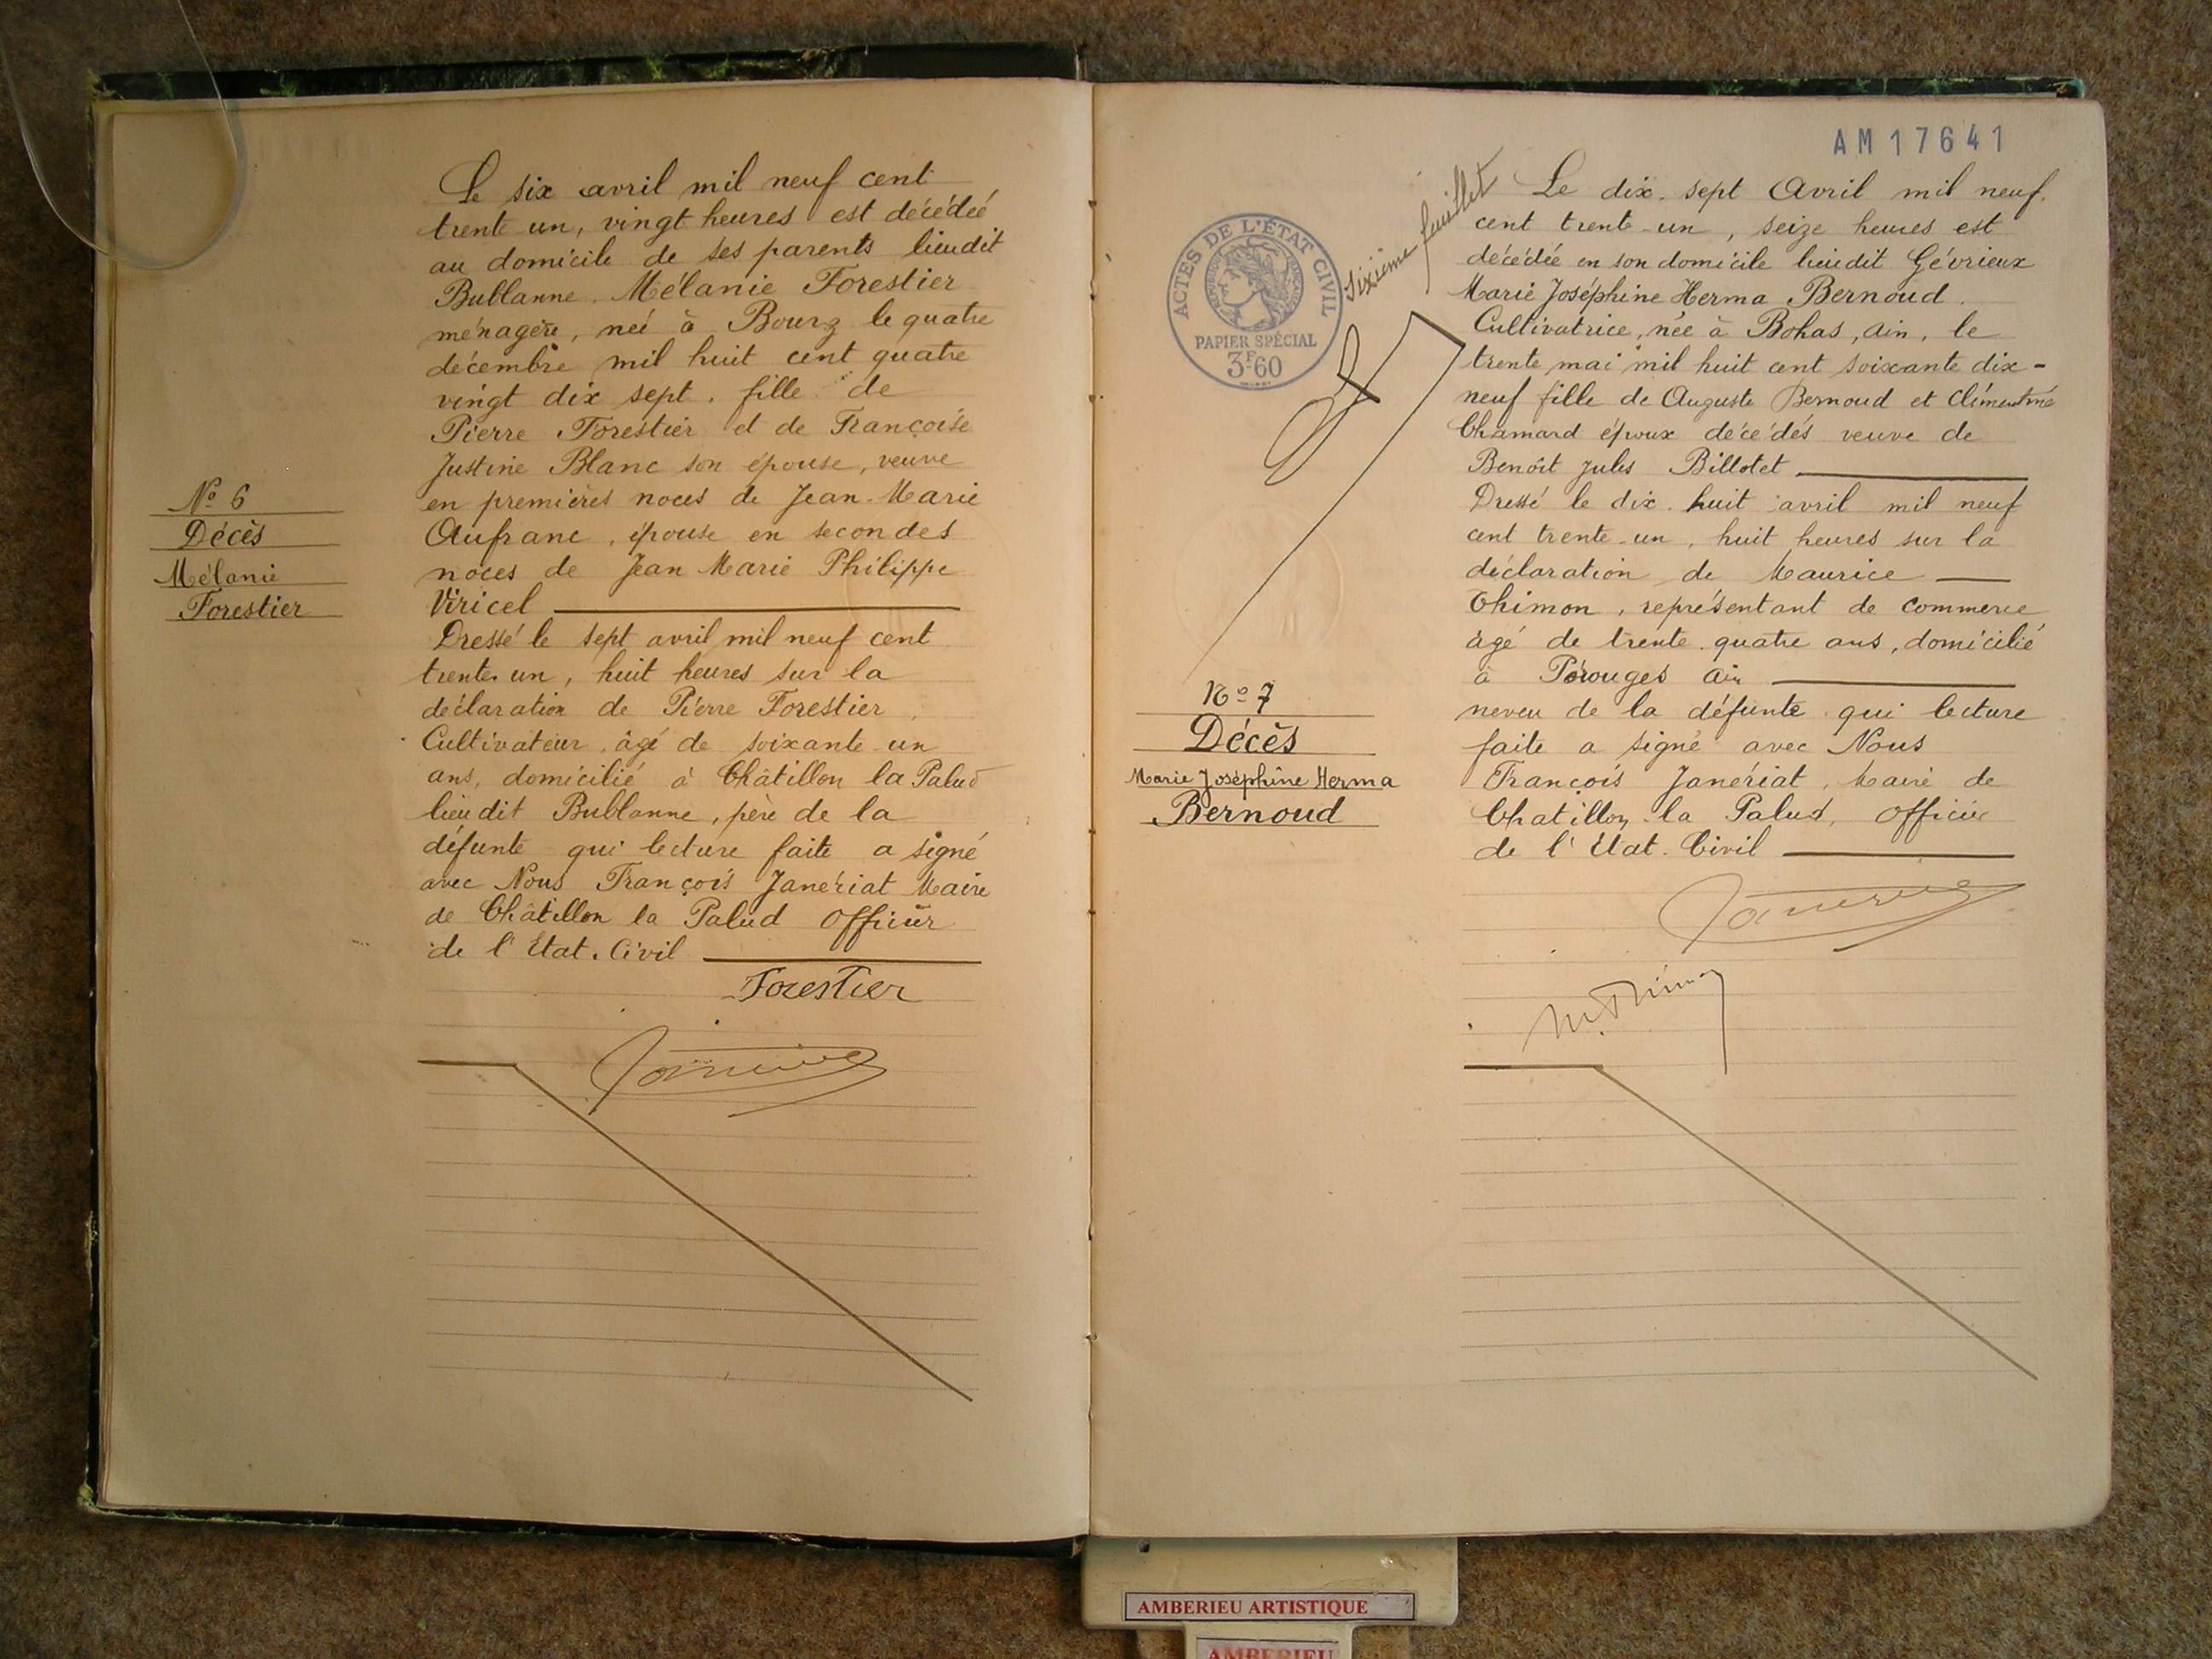 Le six avril mil neuf cent
trente un, vingt heures est décédée
au domicile de ses parents lieudit
Bublanne. Mélanie Forestier
ménagère, née à Bourg le quatre
décembre mil huit cent quatre
vingt dix sept, fille de
Pierre Forestier et de Françoise
Justine Blanc son épouse, veuve
en premières noces de Jean-Marie
Aufranc, épouse en secondes
noces de Jean Marie Philippe
Viricel
Dressé le sept avril mil neuf cent
trente un, huit heures sur la
déclaration de Pierre Forestier,
Cultivateur, âgé de soixante-un
ans, domicilié à Châtillon la Palud
lieudit Bublanne, père de la
défunte qui lecture faite a signé
avec Nous François Janériat Maire
de Châtillon la Palud Officier
de l'État-Civil
Forestier
N° 6
Décès
Mélanie
Forestier
AM17641
Sixième feuillet
ACTES DE L'ÉTAT CIVIL
PAPIER SPÉCIAL
3F60
Le dix-sept Avril mil neuf
cent trente-un, seize heures est
décédée en son domicile lieudit Gévrieux
Marie Joséphine Herma Bernoud.
Cultivatrice, née à Bohas, Ain, le
trente mai mil huit cent soixante dix-
neuf fille de Auguste Bernoud et Clémentine
Chamard époux décédés veuve de
Benôit Jules Billotet
Dressé le dix-huit avril mil neuf
cent trente-un, huit heures sur la
déclaration de Maurice
Thimon, représentant de commerce
âgé de trente-quatre ans, domicilié
à Pérouges Ain
neveu de la défunte qui lecture
faite a signé avec Nous
François Janériat, Maire de
Chatillon-la Palud, Officier
de l'État-Civil
N° 7
Décès
Marie Joséphine Herma
Bernoud
M. Thimon
AMBERIEU ARTISTIQUE
AMBERIEU